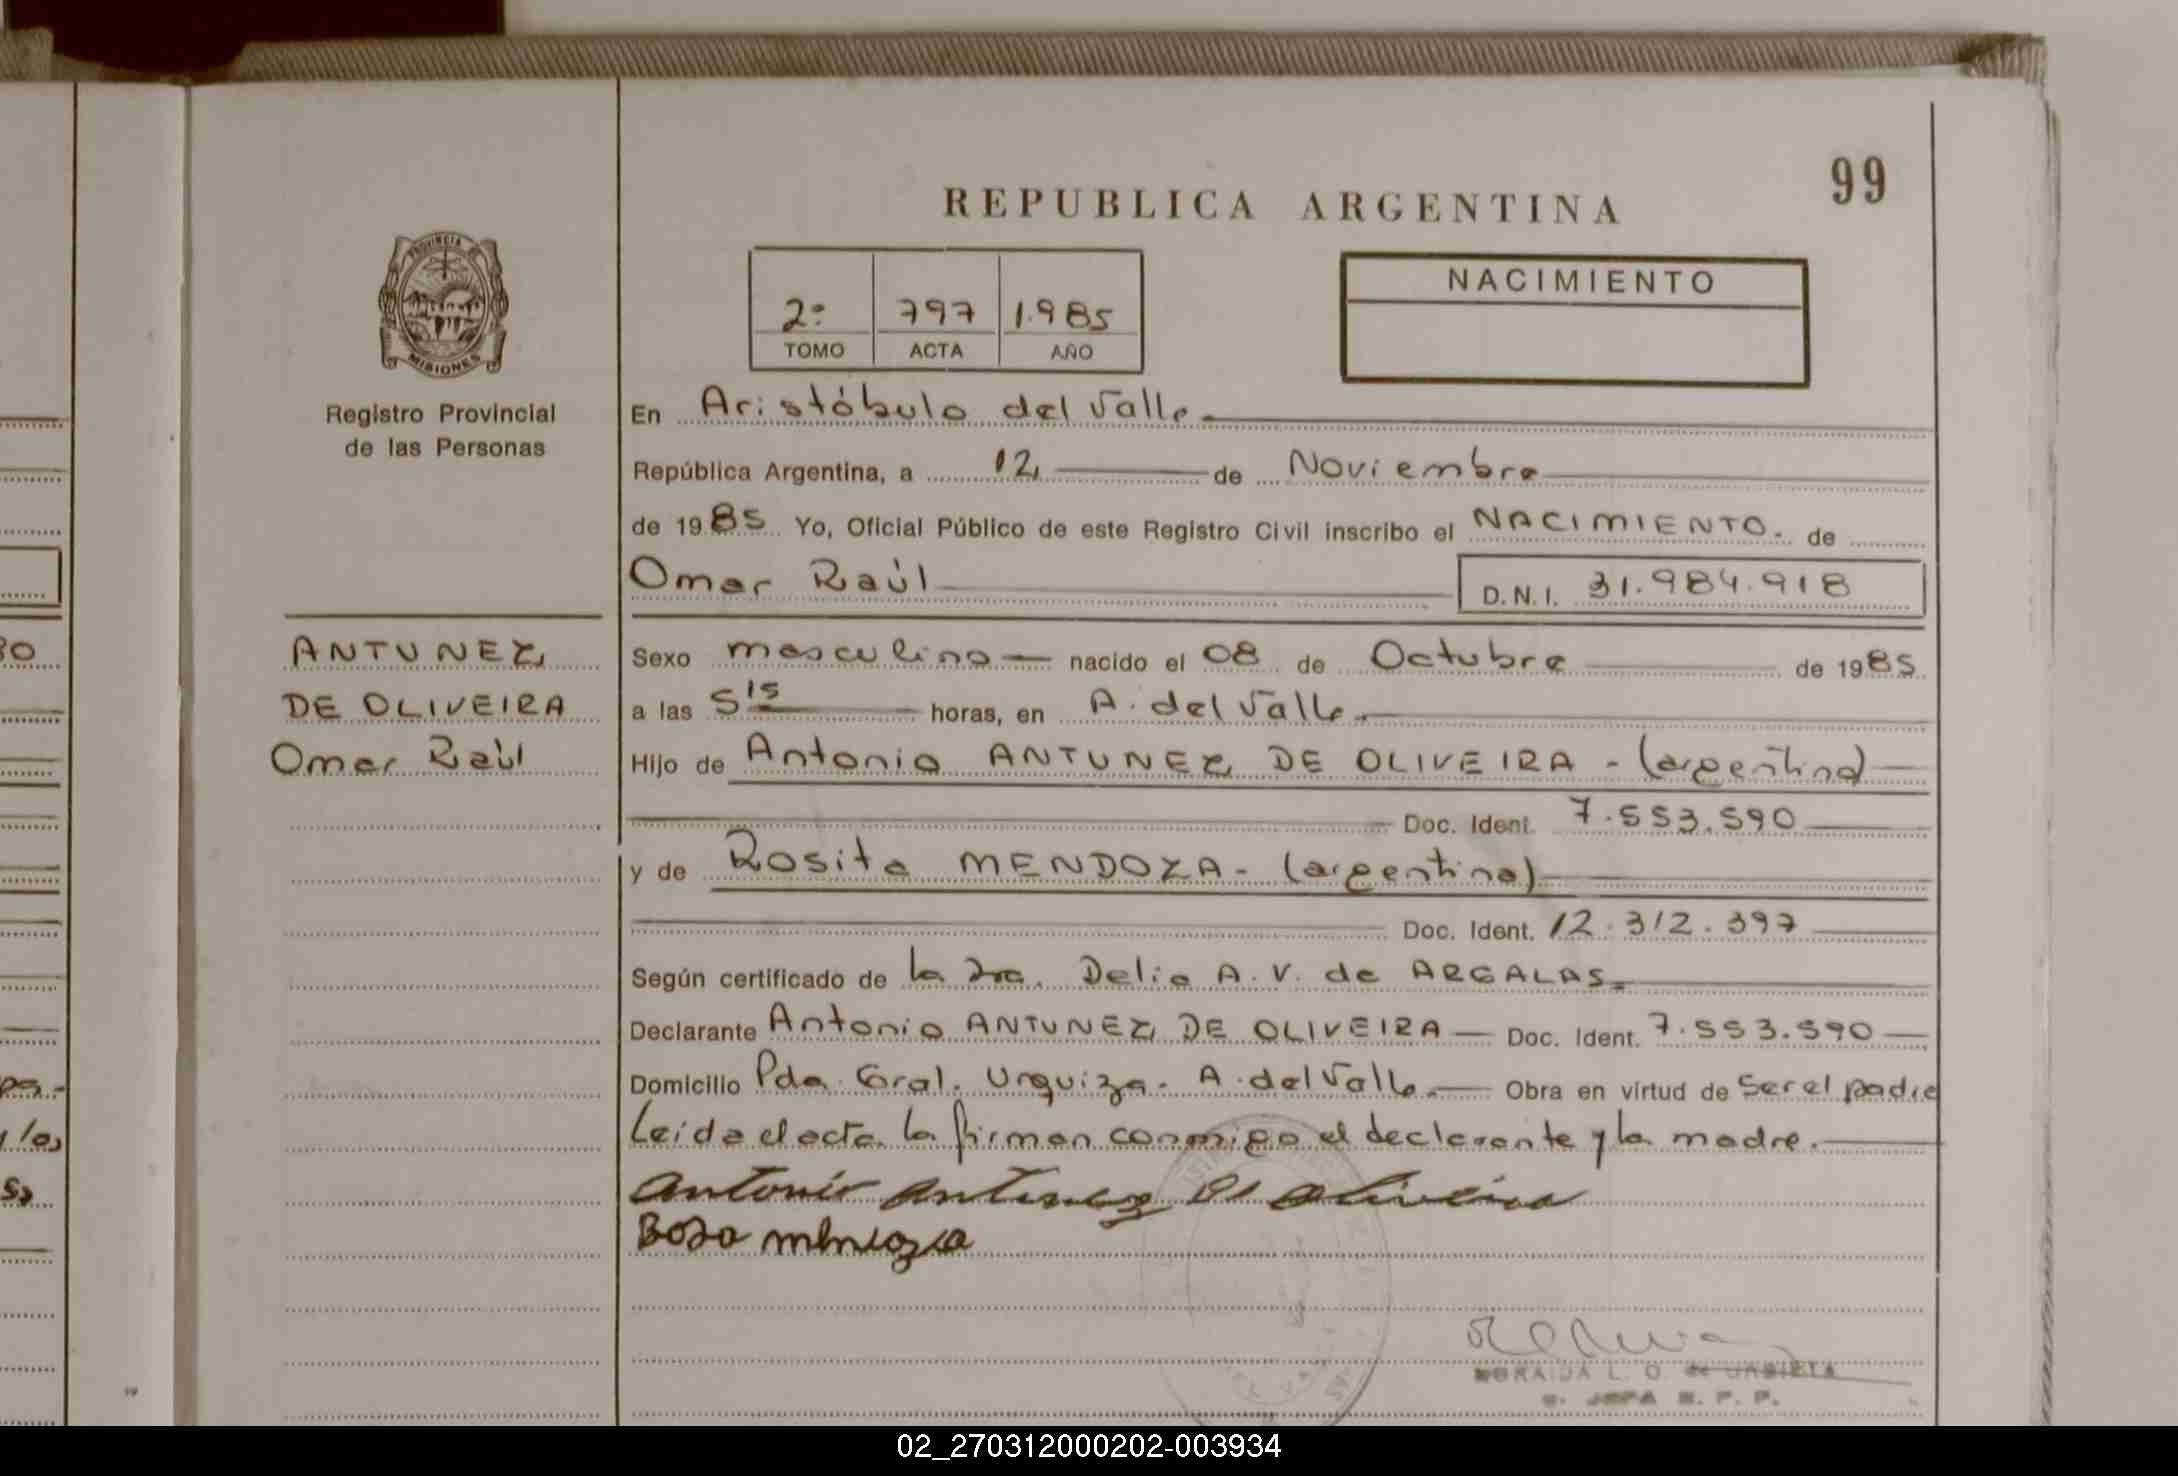 99
REPUBLICA ARGENTINA
PROVINCIA DE
MISIONES
Registro Provincial
de las Personas
2º 797 1.985
TOMO ACTA AÑO
NACIMIENTO
En Aristóbulo del Valle.
República Argentina, a 12 de Noviembre
de 1985 Yo, Oficial Público de este Registro Civil inscribo el NACIMIENTO. de
Omar Raúl D.N.I. 31.984.918
ANTUNEZ
DE OLIVEIRA
Omar Raúl
Sexo masculino nacido el 08 de Octubre de 1985
a las 5 15 horas, en A. del Valle.
Hijo de Antonio ANTUNEZ DE OLIVEIRA - (argentino)
Doc. Ident. 7.553.590
y de Rosita MENDOZA - (argentina)
Doc. Ident. 12.312.397
Según certificado de la Dra. Delia A. V. de ARGALAS.
Declarante Antonio ANTUNEZ DE OLIVEIRA Doc. Ident. 7.553.590
Domicilio Pda. Gral. Urquiza. A. del Valle. Obra en virtud de ser el padre
Leída el acta la firman conmigo el declarante y la madre.
Antonio Antunez De Oliveira
Rosa mendoza
L. O. de URBIETA
JEFA R. P. P.
02_270312000202-003934